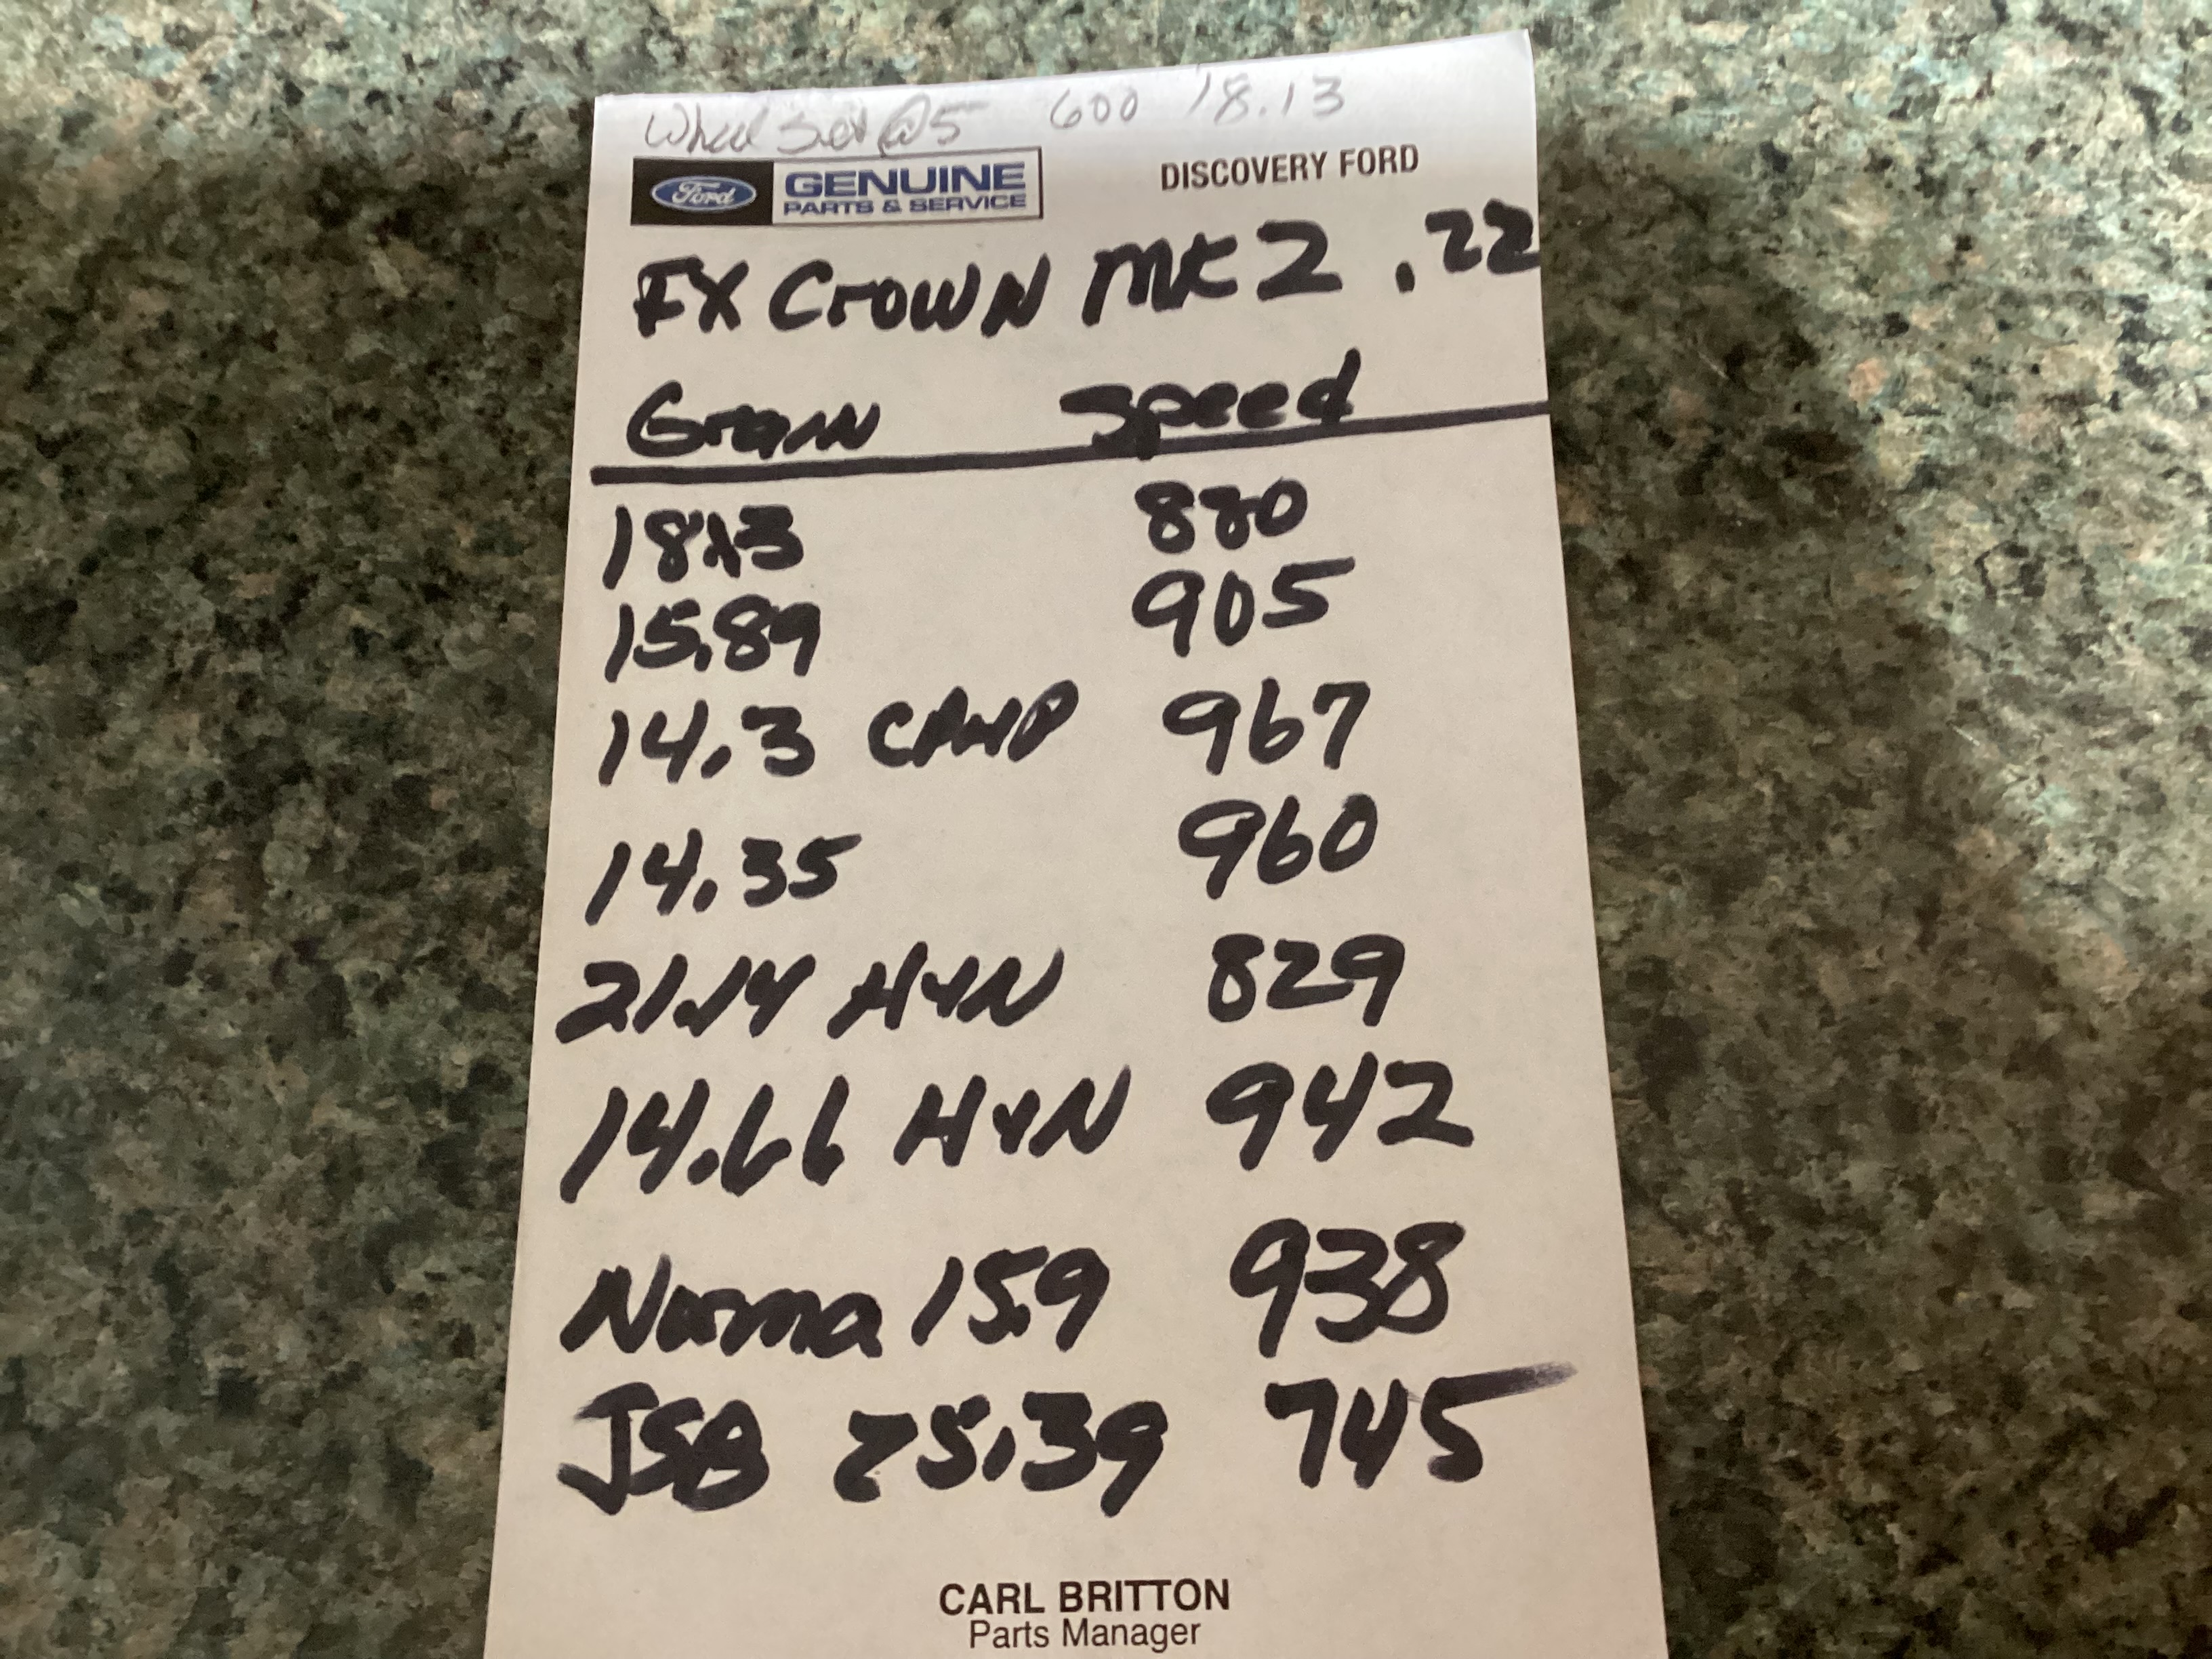 Wheel Set @5 600 18.13
Ford GENUINE PARTS & SERVICE DISCOVERY FORD
FX Crown MK2 .22
Grain Speed
18.13 880
15.89 905
14.3 CPHP 967
14.35 960
21.14 H+N 829
14.66 H+N 942
Norma 15.9 938
JSB 25.39 745
CARL BRITTON
Parts Manager